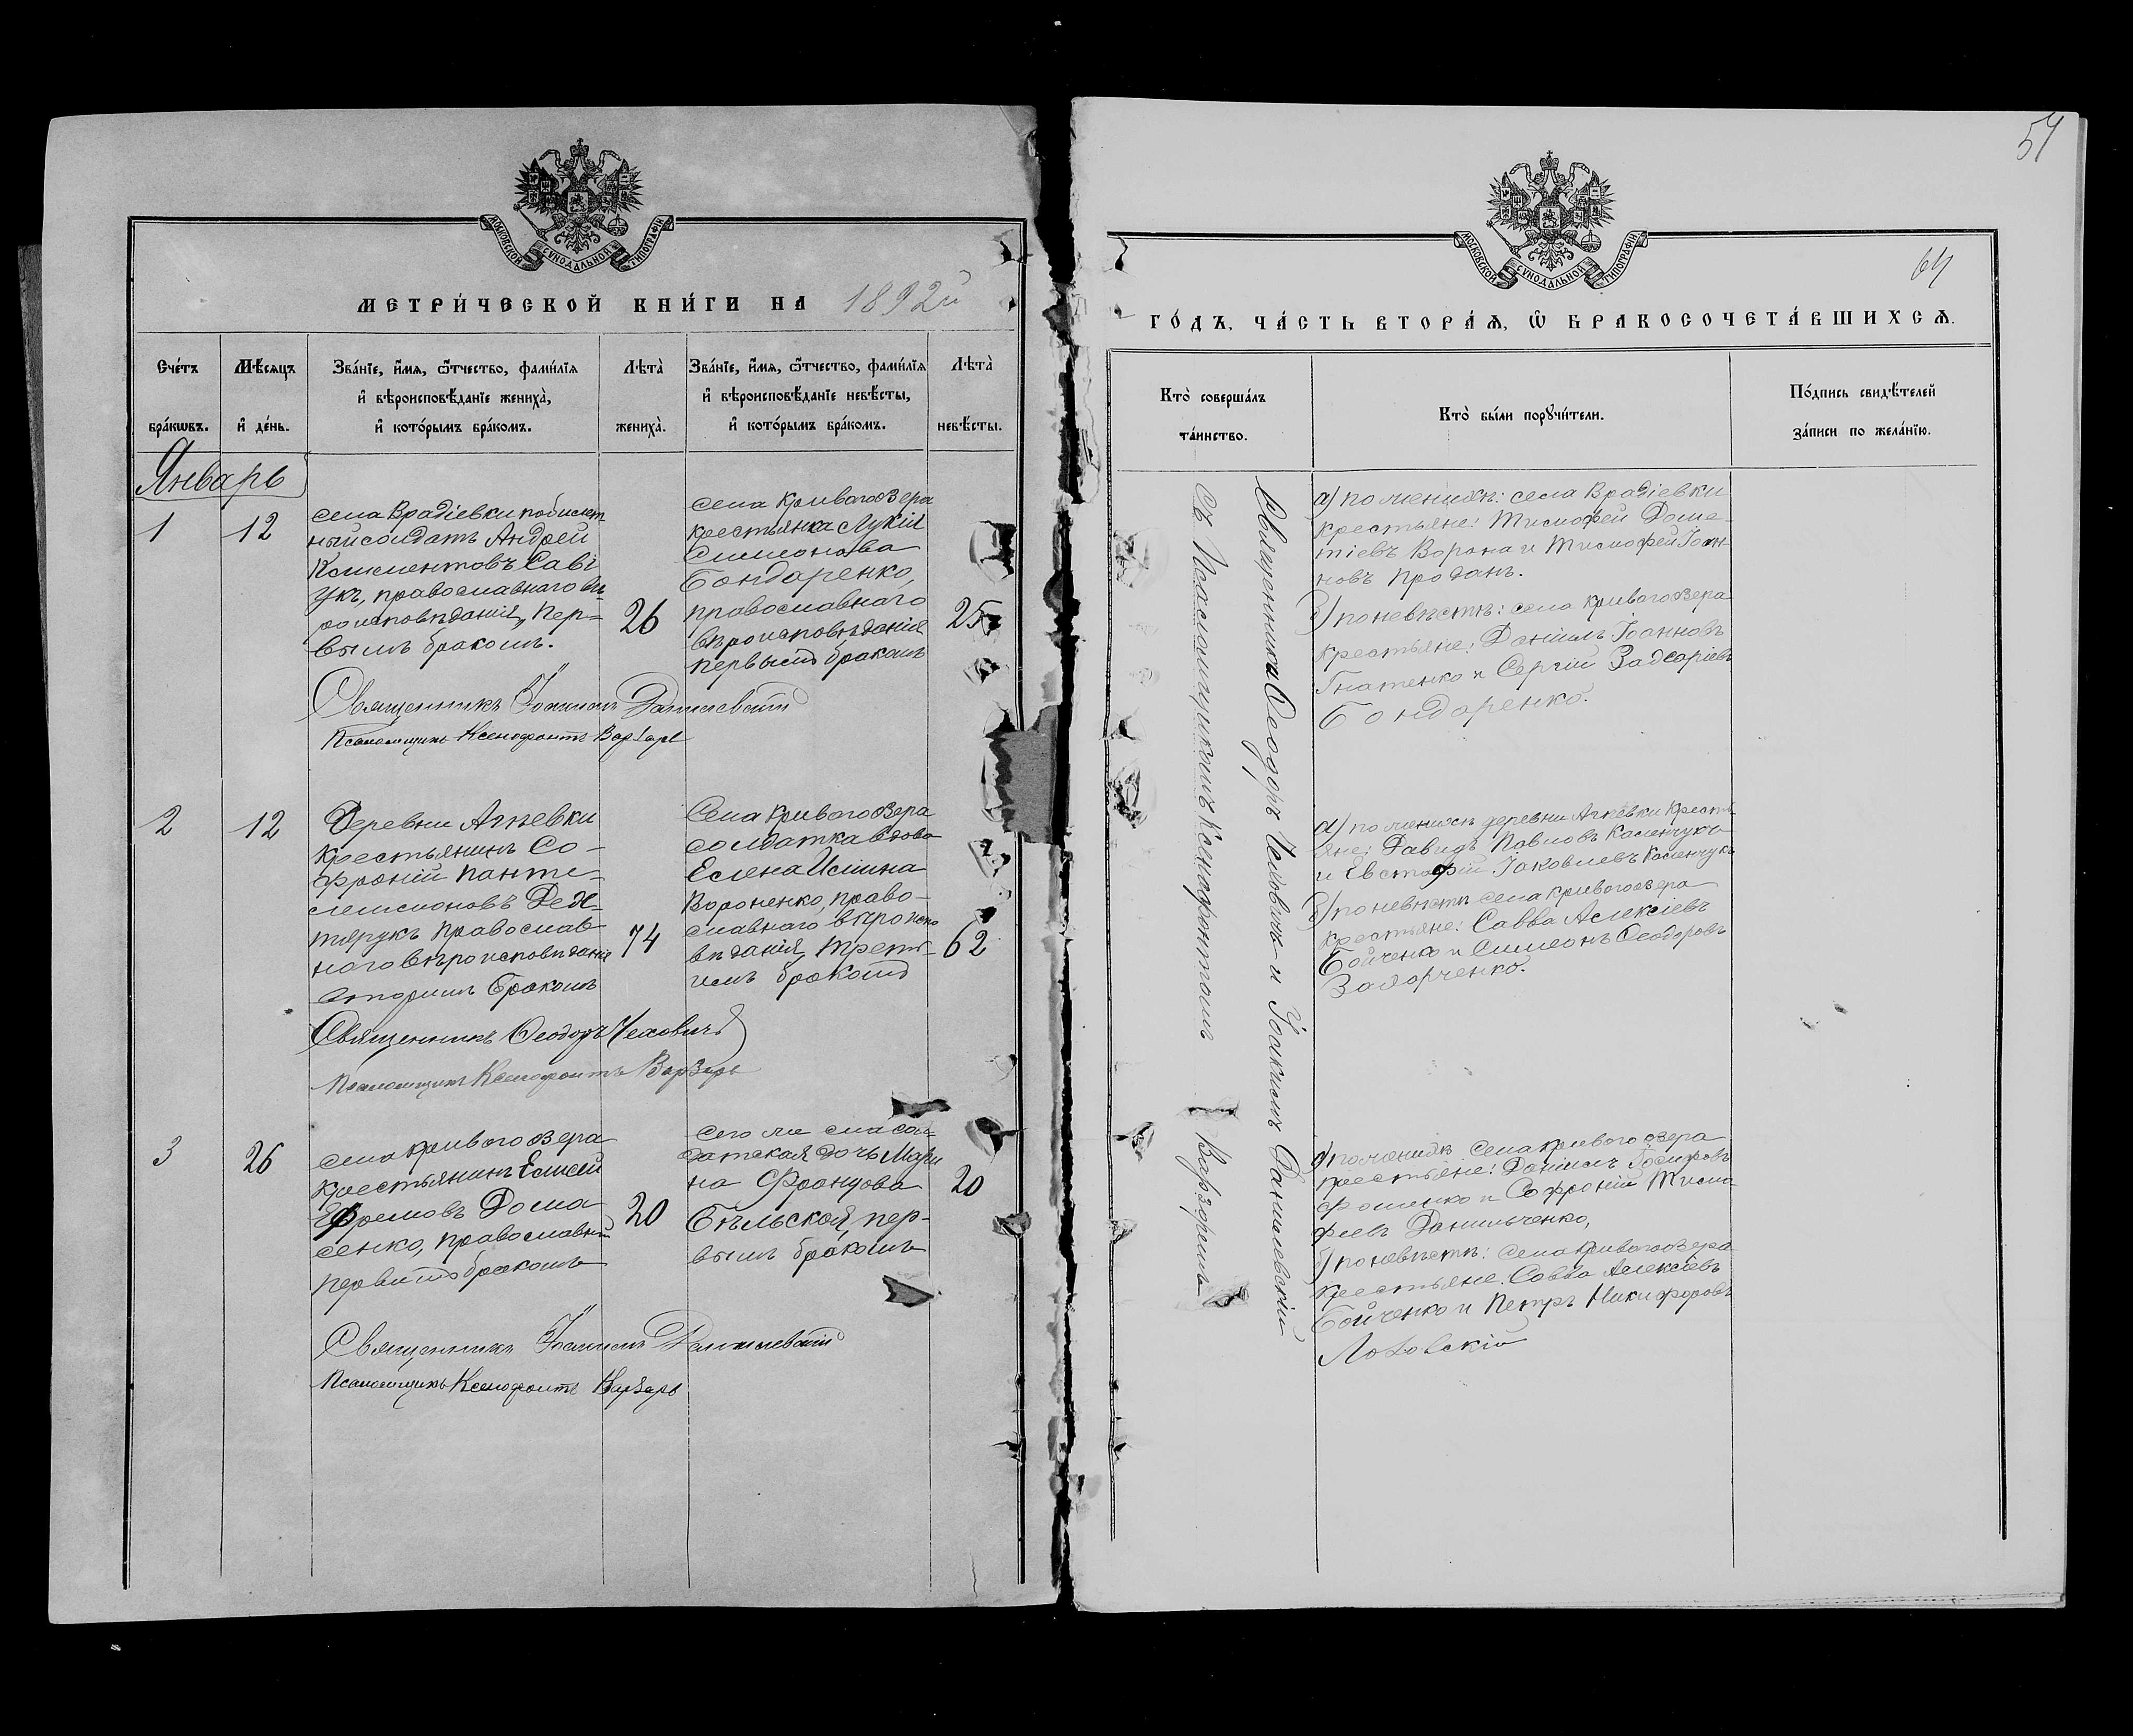 54
МОСКОВСКОЙ СѴНОДАЛЬНОЙ ТИПОГРАФІИ
МЕТРИ́ЧЕСКОЙ КНИ́ГИ НА 1892й
Сче́тъ бра́кѡвъ.
Мѣ́сяцъ и҆ де́нь.
Зва́нїе, и҆́мя, ѻ҆́тчество, фами́лїя
и҆ вѣроисповѣ́данїе жениха̀,
и҆ кото́рымъ бра́комъ.
Лѣта̀ жениха̀.
Зва́нїе, и҆́мя, ѻ҆́тчество, фами́лїя
и҆ вѣроисповѣ́данїе невѣ́сты,
и҆ кото́рымъ бра́комъ.
Лѣта̀ невѣ́сты.
Январь
1
12
села Врадіевки побилет
ный солдатъ Андрей
Климентовъ Саві
укъ, православнаго вѣ
роисповѣданія, пер=
вымъ бракомъ.
26
села Кривогоозера
крестьянка Лукія
Симионова
Бондаренко,
православнаго
вѣроисповѣданія
первымъ бракомъ
25
Священникъ Іоакимъ Данилевскій
Псаломщикъ Ксенофонтъ Варзарь
2
12
Деревни Агѣевки
крестьянинъ Со-
фроній Панте-
леимоновъ
православ
наго вѣроисповѣданія
вторымъ бракомъ
74
Села Кривогоозера
солдатка вдова
Елена Илiина
Вороненко, право-
славнаго вѣроиспо
вѣданія, треть-
имъ бракомъ
62
Священникъ Ѳеодоръ Чехович
Псаломщикъ Ксенофонтъ Варзарь
3
26
села Кривого озера
крестьянинъ Елисей
Ефремовъ Дома
сенко, православный
первымъ бракомъ
20
сего же села сол=
датская дочь Мари
на Францова
Бѣльская, пер-
вымъ бракомъ
20
Священникъ Іоакимъ Данилевскій
Псаломщикъ Ксенофонтъ Варзарь
МОСКОВСКОЙ СѴНОДАЛЬНОЙ ТИПОГРАФІИ
64
ГО́ДЪ, ЧА́СТЬ ВТОРА́Ѧ, Ѽ БРАКОСОЧЕТА́ВШИХСѦ.
Кто̀ соверша́лъ
та́инство.
Кто̀ бы́ли порꙋчи́тели.
По́дпись свидѣ́телей
за́писи по жела́нїю.
Священники Ѳеодоръ Чехович и Іоакимъ Данилевскій
Съ Псаломщикомъ Ксенофонтомъ Варзаремъ
а) по женихѣ: села Врадіевки
крестьяне: Тимофей Доме-
тіевъ Ворона и Тимофей Іоан-
новъ Проданъ.
б) по невѣстѣ: села Кривогоозера
крестьяне: Даніилъ Іоанновъ
Гнатенко и Сергій
Бондаренко.
а) по женихѣ деревни Агѣевки кресть
яне: Давидъ Павловъ Каленчукъ
и Евстафій Іаковлевъ Каленчукъ
б) по невѣстѣ села Кривогоозера
крестьяне: Савва Алексіевъ
Бойченко и Симеонъ Ѳеодоровъ
Захорченко.
а) по женихѣ села Кривого озера
крестьяне: Даніилъ
Фоменко и Софроній Тимо
феевъ Данильченко,
б) по невѣстѣ: села Кривогоозера
крестьяне. Савва Алексіевъ
Бойченко и Петръ Никифоровъ
Лозовскій